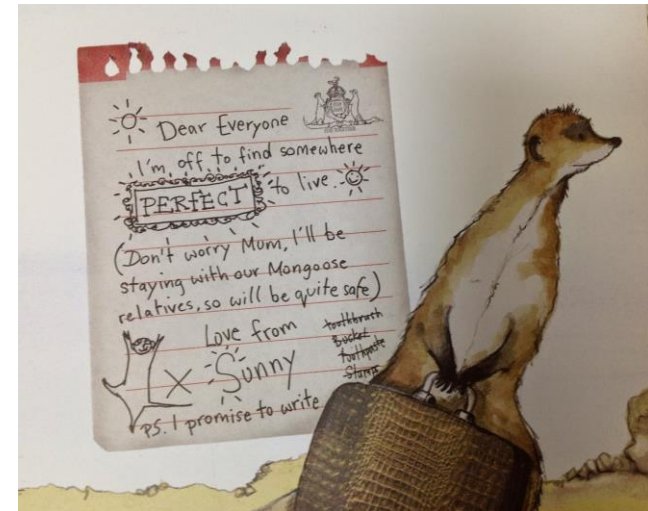 Dear Everyone
I'm off to find somewhere
PERFECT to live.
(Don't worry Mum, I'll be
staying with our Mongoose
relatives, so will be quite safe)
Love from
toothbrush
Bucket
toothpaste
Stamps
X Sunny
ps. I promise to write